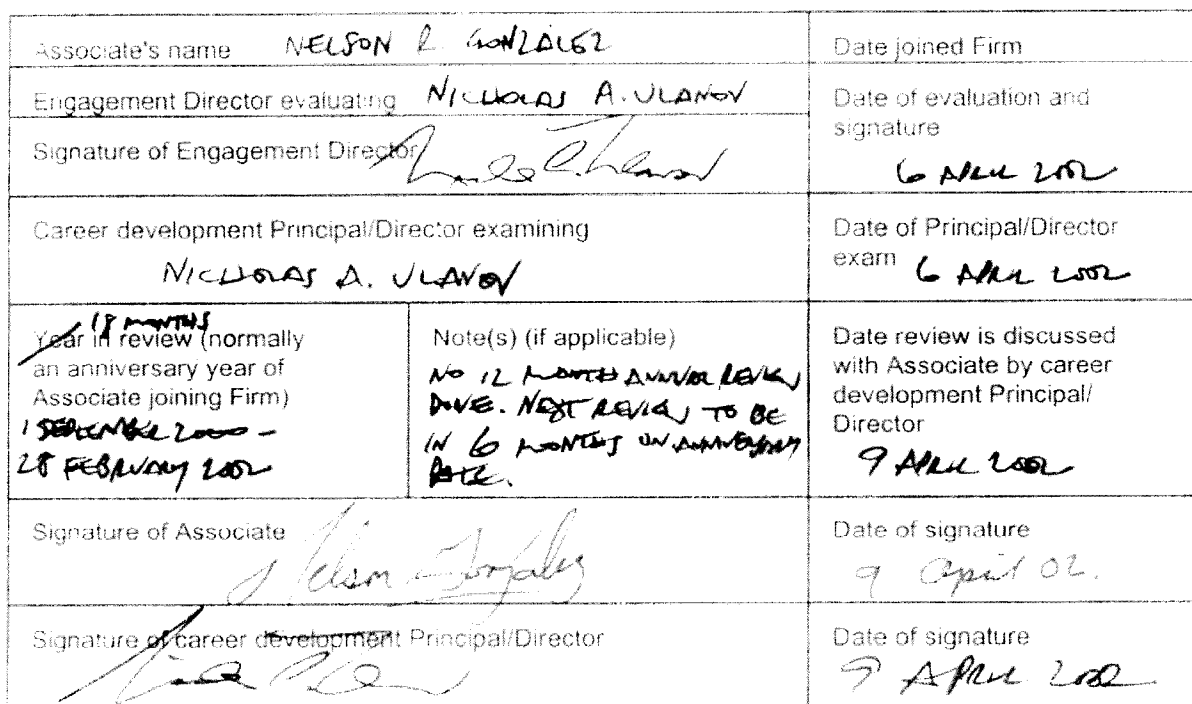 Associate's name NELSON R. GONZALEZ
Date joined Firm
Engagement Director evaluating NICHOLAS A. ULANOV
Date of evaluation and
signature
6 APRIL 2002
Signature of Engagement Director
Career development Principal/Director examining
NICHOLAS A. ULANOV
Date of Principal/Director
exam 6 APRIL 2002
18 MONTHS
Year in review (normally
an anniversary year of
Associate joining Firm)
1 SEPTEMBER 2000 -
28 FEBRUARY 2002
Note(s) (if applicable)
NO 12 MONTH ANNUAL REVIEW
DONE. NEXT REVIEW TO BE
IN 6 MONTHS ON ANNIVERSARY
DATE.
Date review is discussed
with Associate by career
development Principal/
Director
9 APRIL 2002
Signature of Associate
Nelson Gonzalez
Date of signature
9 April 02.
Signature of career development Principal/Director
Date of signature
9 APRIL 2002